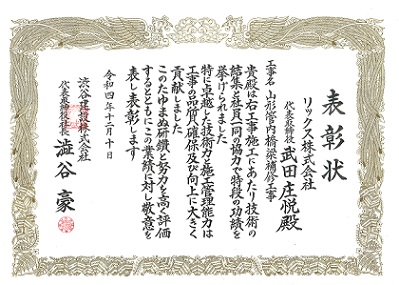 表彰状
リックス株式会社
代表取締役 武田庄悦殿
工事名 山形管内橋梁補修工事
貴殿は右工事施工にあたり技術の
結集と社員一同の協力で特段の功績を
挙げられました
特に卓越した技術力と施工管理能力は
工事の品質確保及び向上に大きく
貢献しました
このたゆまぬ研鑽と努力を高く評価
するとともにこの業績に対し敬意を
表し表彰します
令和四年十二月十日
渋谷建設株式会社
代表取締役社長 澁谷豪